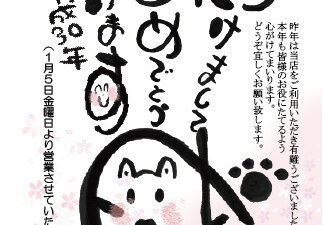 昨年は当店をご利用いただき有難うございました
本年も皆様のお役にたてるよう
心がけてまいります。
どうぞ宜しくお願い致します。
けまして
おめでとう
います
成30年
(1月5日金曜日より営業させていた